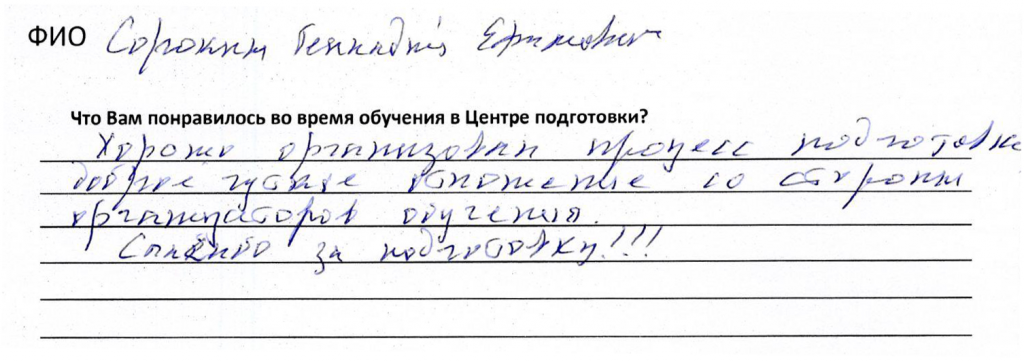 ФИО Сорокин Геннадий Ефимович
Что Вам понравилось во время обучения в Центре подготовки?
Хорошо организован процесс подготовки
доброе чуткое отношение со стороны
организаторов обучения.
Спасибо за подготовку!!!